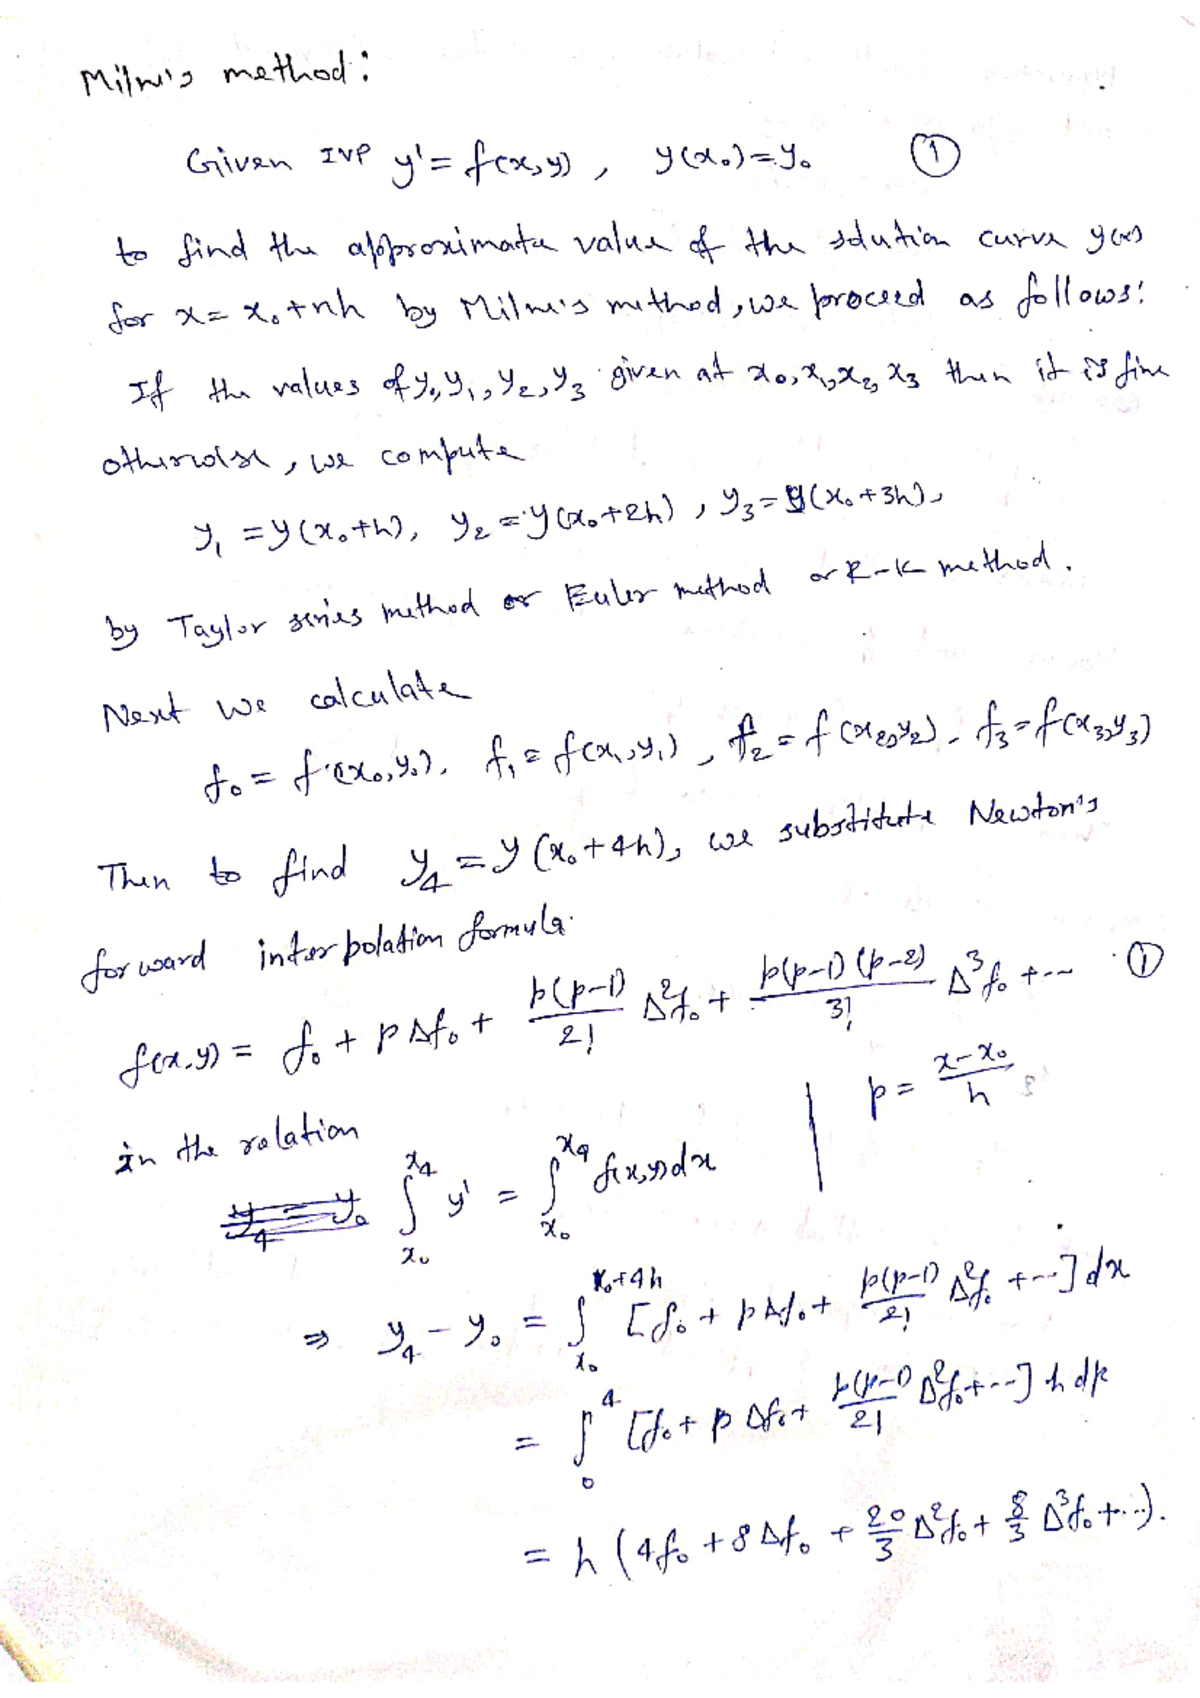 Milne's method:
Given IVP y' = f(x,y), y(x₀) = y₀ ①
to find the approximate value of the solution curve y(x)
for x = x₀ + nh by Milne's method, we proceed as follows:
If the values of y₀, y₁, y₂, y₃ given at x₀, x₁, x₂, x₃ then it is fine
otherwise, we compute
y₁ = y(x₀+h), y₂ = y(x₀+2h), y₃ = y(x₀+3h),
by Taylor series method or Euler method or R-K method.
Next we calculate
f₀ = f(x₀,y₀), f₁ = f(x₁,y₁), f₂ = f(x₂,y₂), f₃ = f(x₃,y₃)
Then to find y₄ = y(x₀+4h), we substitute Newton's
forward interpolation formula
f(x,y) = f₀ + pΔf₀ + p(p-1)/2! Δ²f₀ + p(p-1)(p-2)/3! Δ³f₀ + --- ①
p = (x-x₀)/h
in the relation
∫_{x₀}^{x₄} y' = ∫_{x₀}^{x₄} f(x,y)dx
⇒ y₄ - y₀ = ∫_{x₀}^{x₀+4h} [f₀ + pΔf₀ + p(p-1)/2! Δ²f₀ + ---] dx
= ∫_{0}^{4} [f₀ + pΔf₀ + p(p-1)/2! Δ²f₀ + ---] h dp
= h (4f₀ + 8Δf₀ + 20/3 Δ²f₀ + 8/3 Δ³f₀ + ...).